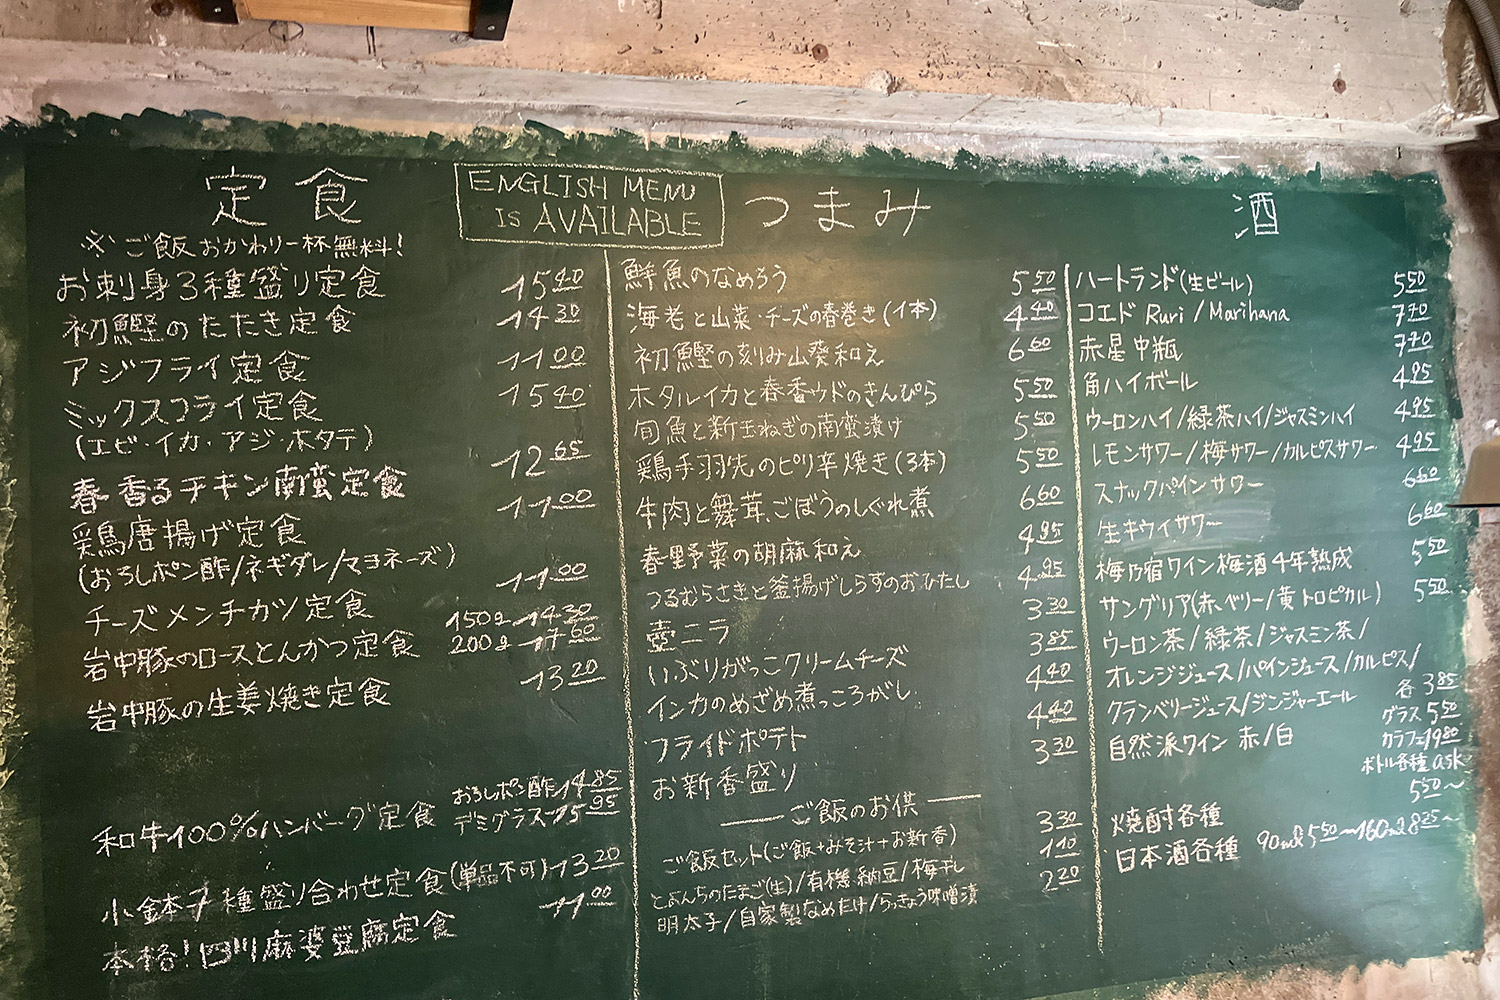 定食
※ご飯おかわり一杯無料!
お刺身3種盛り定食 1540
初鰹のたたき定食 1430
アジフライ定食 1100
ミックスフライ定食 1540
(エビ・イカ・アジ・ホタテ)
春香るチキン南蛮定食 1265
鶏唐揚げ定食 1100
(おろしポン酢/ネギダレ/マヨネーズ)
チーズメンチカツ定食 1100
岩中豚のロースとんかつ定食 150g 1430
200g 1760
岩中豚の生姜焼き定食 1320
和牛100%ハンバーグ定食 おろしポン酢 1485
デミグラス 1595
小鉢7種盛り合わせ定食(単品不可) 1320
本格!四川麻婆豆腐定食 1100
ENGLISH MENU
IS AVAILABLE
つまみ
鮮魚のなめろう 550
海老と山菜・チーズの春巻き(1本) 440
初鰹の刻み山葵和え 660
ホタルイカと春香ウドのきんぴら 550
旬魚と新玉ねぎの南蛮漬け 550
鶏手羽先のピリ辛焼き(3本) 550
牛肉と舞茸、ごぼうのしぐれ煮 660
春野菜の胡麻和え 495
つるむらさきと釜揚げしらすのおひたし 495
壺ニラ 330
いぶりがっこクリームチーズ 385
インカのめざめ煮っころがし 440
フライドポテト 440
お新香盛り 330
ご飯のお供
ご飯セット(ご飯+みそ汁+お新香) 330
とよんちのたまご(生)/有機納豆/梅干し 110
明太子/自家製なめたけ/らっきょう味噌漬 220
酒
ハートランド(生ビール) 550
コエド Ruri/Marihana 770
赤星中瓶 770
角ハイボール 495
ウーロンハイ/緑茶ハイ/ジャスミンハイ 495
レモンサワー/梅サワー/カルピスサワー 495
スナックパインサワー 660
生キウイサワー 660
梅乃宿ワイン梅酒4年熟成 550
サングリア(赤ベリー/黄トロピカル) 550
ウーロン茶/緑茶/ジャスミン茶/
オレンジジュース/パインジュース/カルピス/
クランベリージュース/ジンジャーエール 各385
自然派ワイン 赤/白 グラス550
カラフェ1980
ボトル各種ask
焼酎各種 550～
日本酒各種 90ml 550～160ml 825～